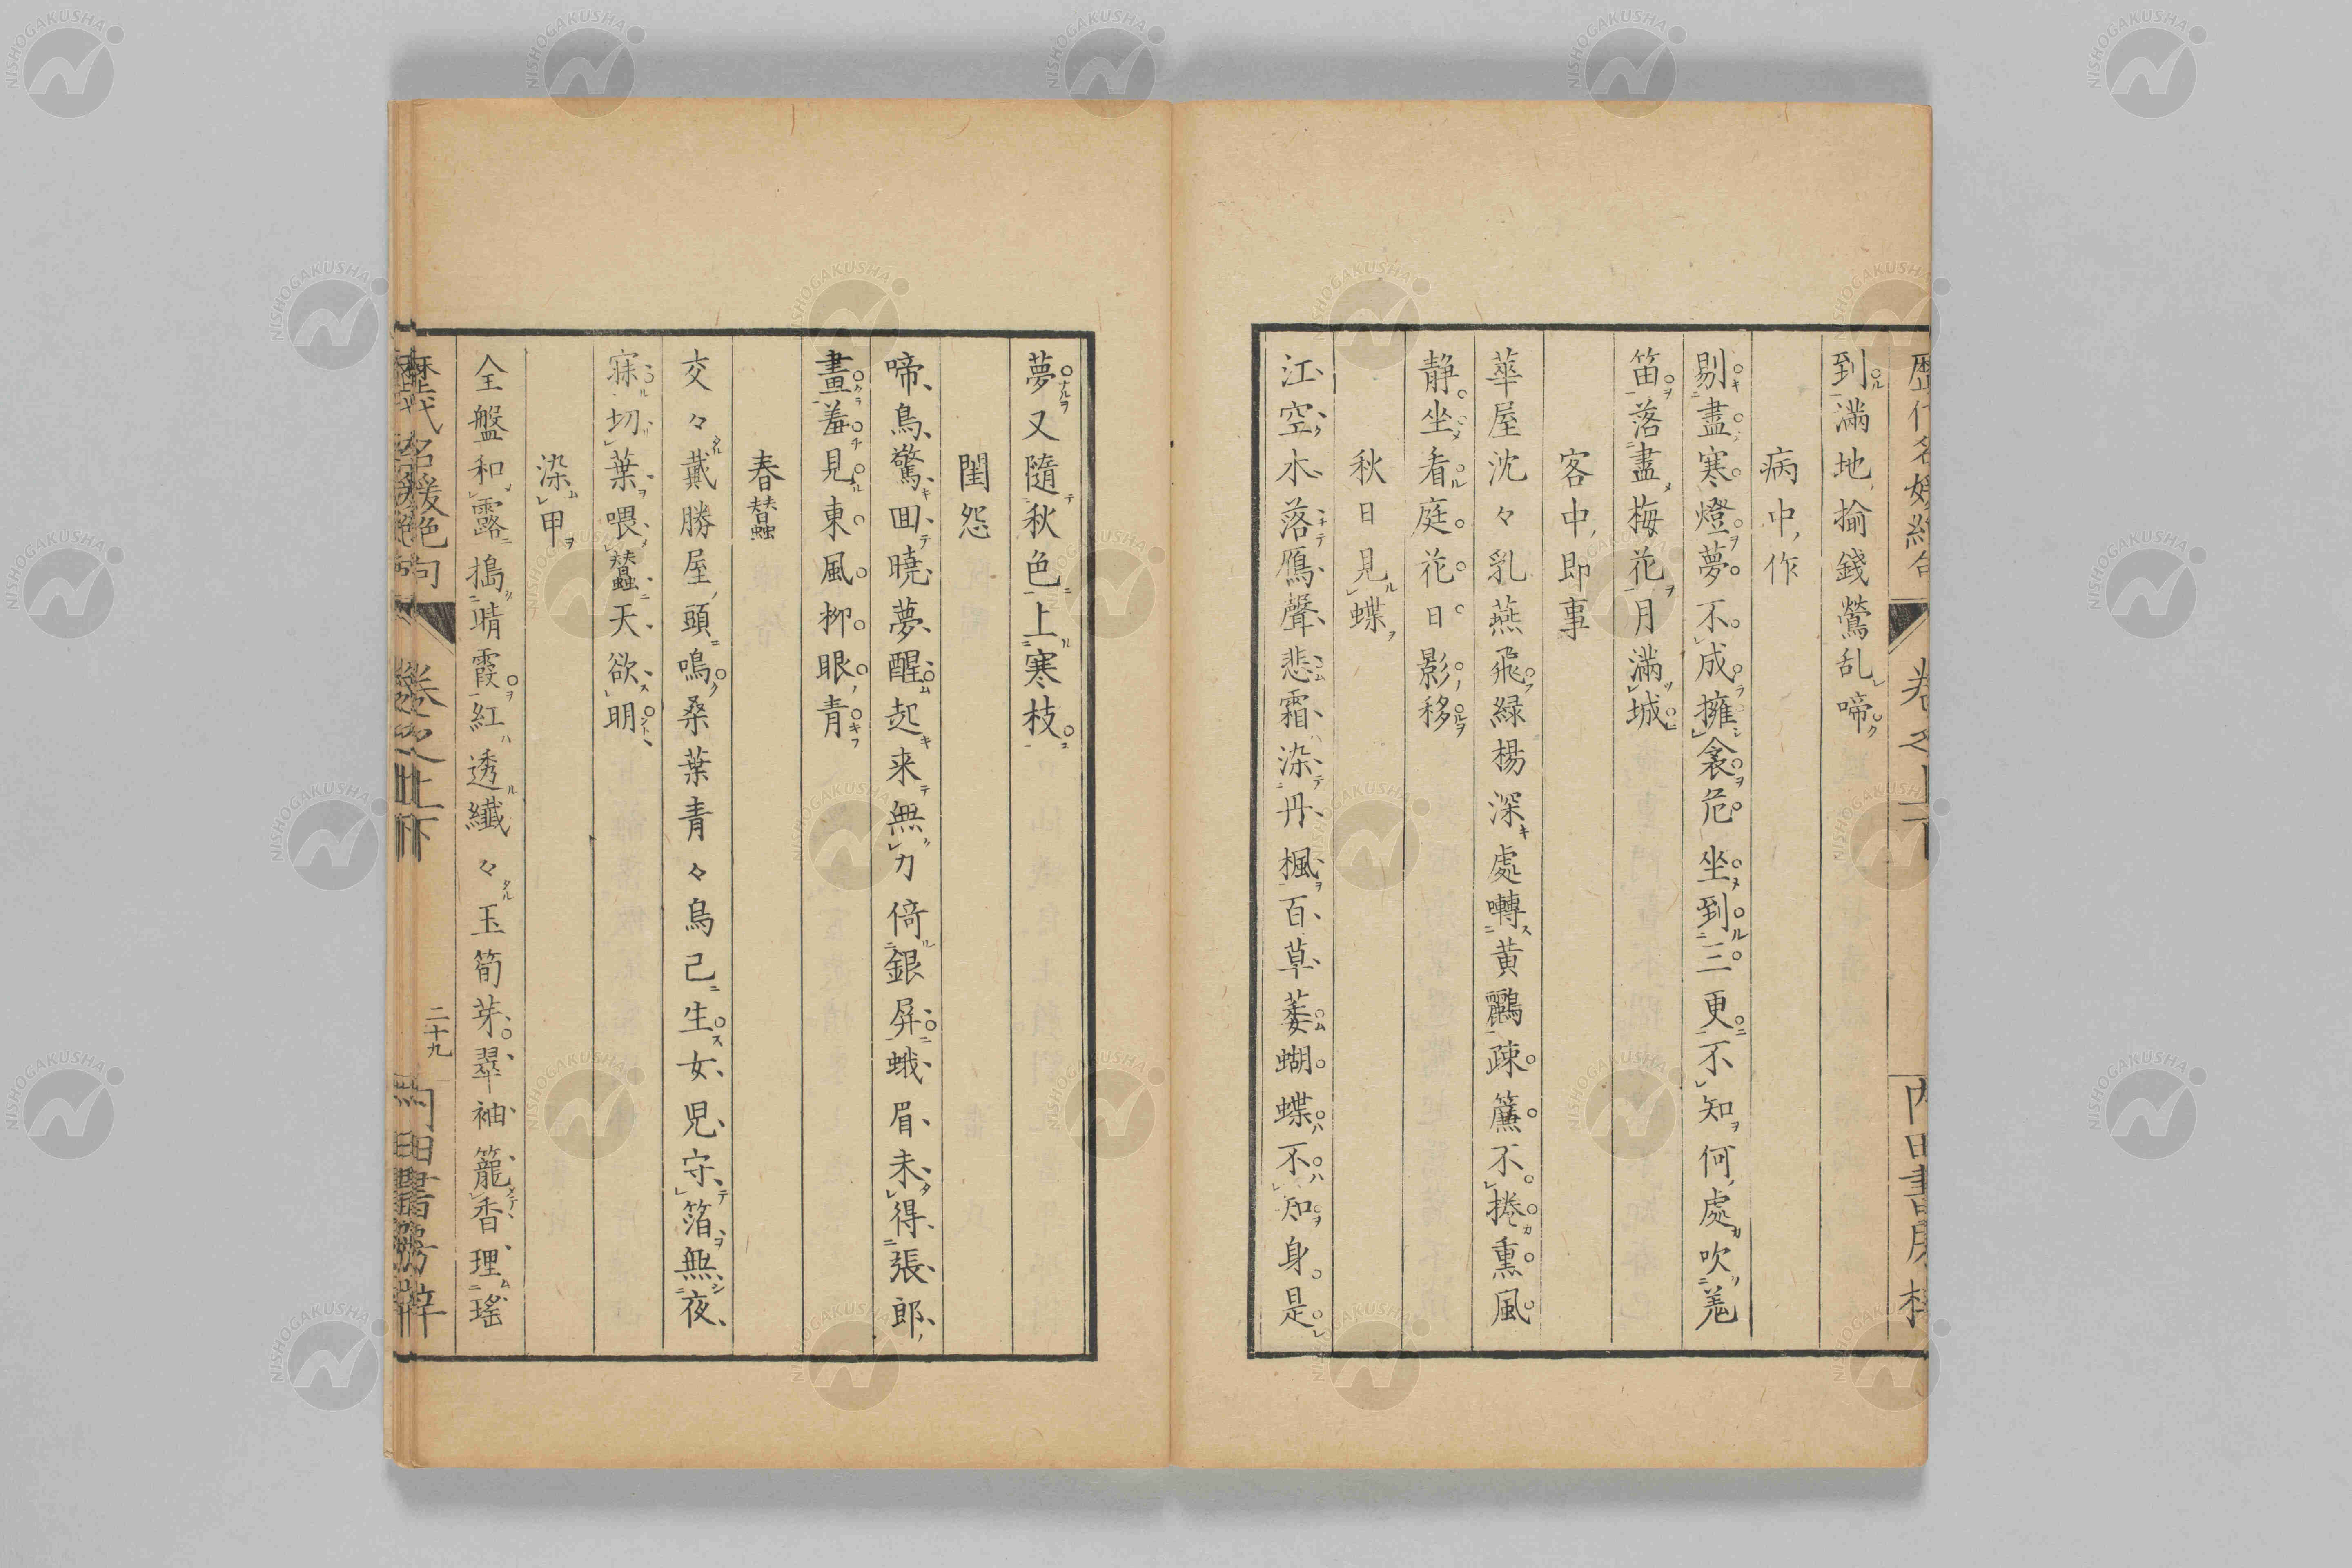 到滿地揄錢鶯乱啼
病中作
剔盡寒燈夢不成擁衾危坐到三更不知何處吹羗
笛落盡梅花月滿城
客中即事
華屋沈々乳燕飛緑楊深處囀黃鸝疎簾不捲熏風
静坐看庭花日影移
秋日見蝶
江空木落鴈聲悲霜染丹楓百草萎蝴蝶不知身是
夢又隨秋色上寒枝
閨怨
啼鳥驚回曉夢醒起来無力倚銀屏蛾眉未得張郎
畫羞見東風柳眼青
春蠶
交々戴勝屋頭鳴桑葉青々烏已生女児守箔無夜
寐切葉喂蠶天欲明
染甲
金盤和露搗晴霞紅透纖々玉筍芽翠袖籠香理瑤
歴代名媛絶句 卷之上下 二十九 内田書房梓